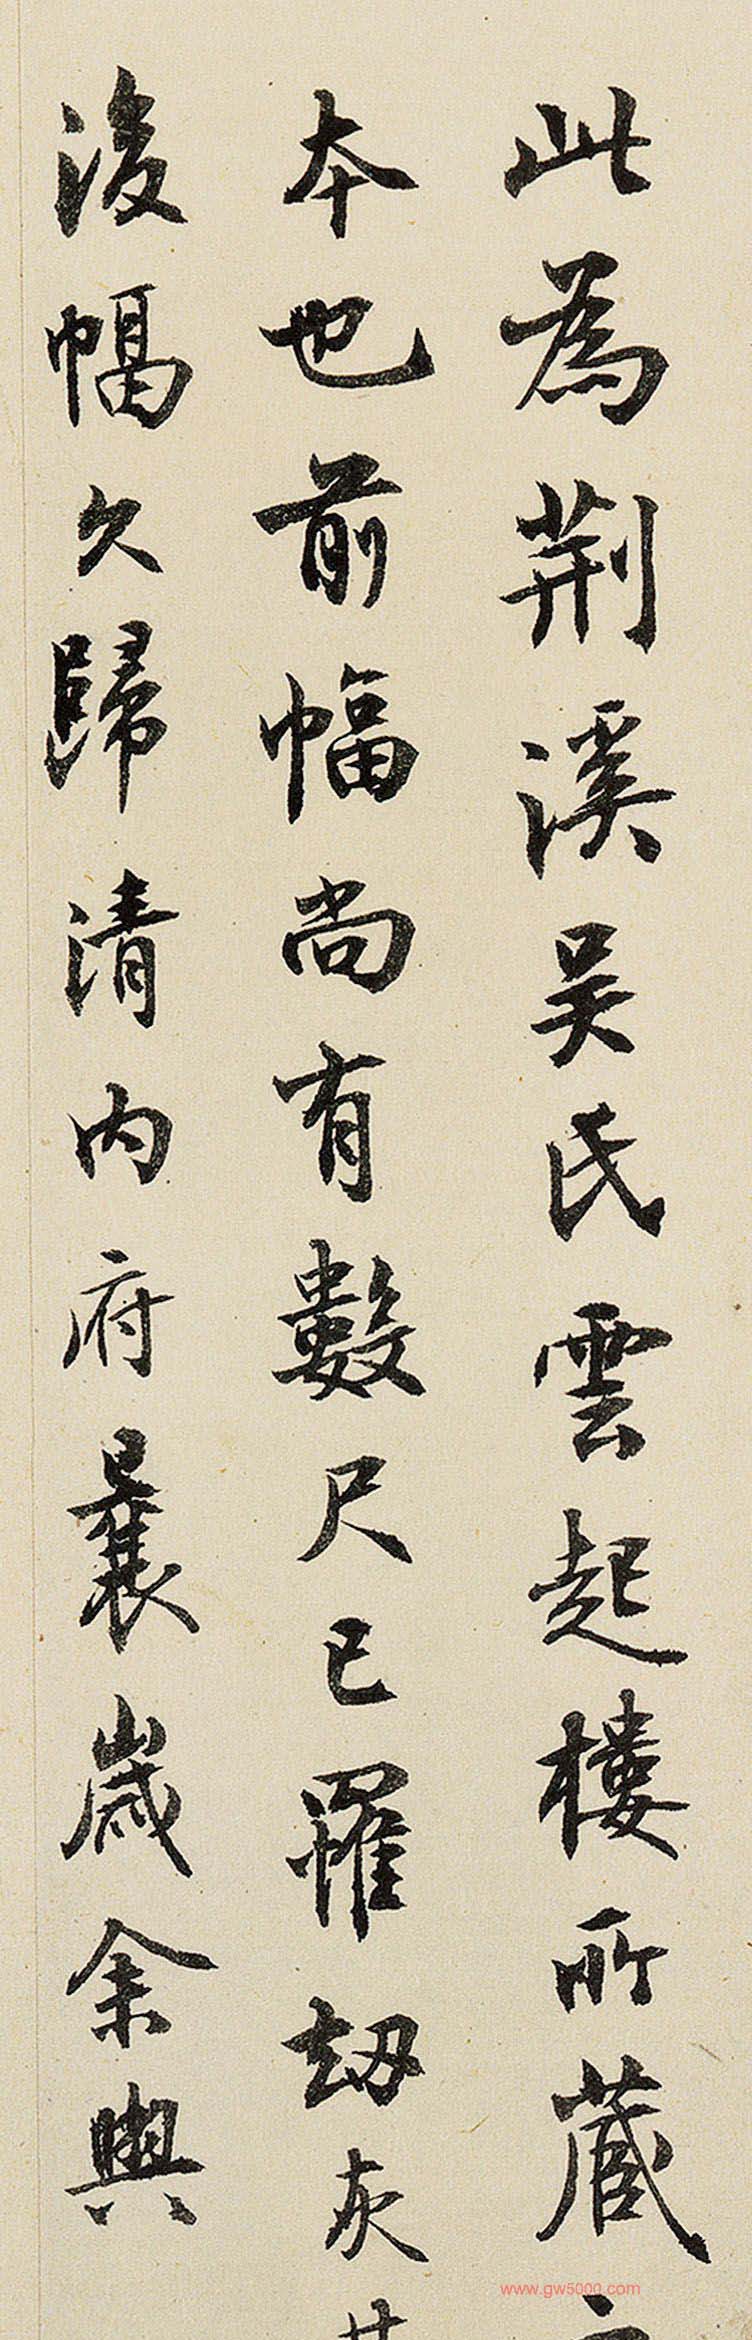 此為荆溪吴氏雲起樓所藏
本也前幅尚有數尺已罹劫灰其
後幅久歸清内府曩歲余與
www.gw5000.com